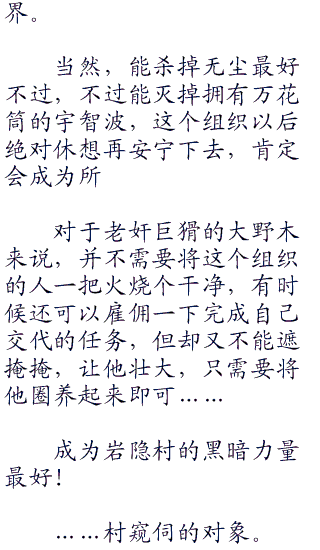 界。
当然，能杀掉无尘最好
不过，不过能灭掉拥有万花
筒的宇智波，这个组织以后
绝对休想再安宁下去，肯定
会成为所
对于老奸巨猾的大野木
来说，并不需要将这个组织
的人一把火烧个干净，有时
候还可以雇佣一下完成自己
交代的任务，但却又不能遮
掩掩，让他壮大，只需要将
他圈养起来即可……
成为岩隐村的黑暗力量
最好！
……村窥伺的对象。